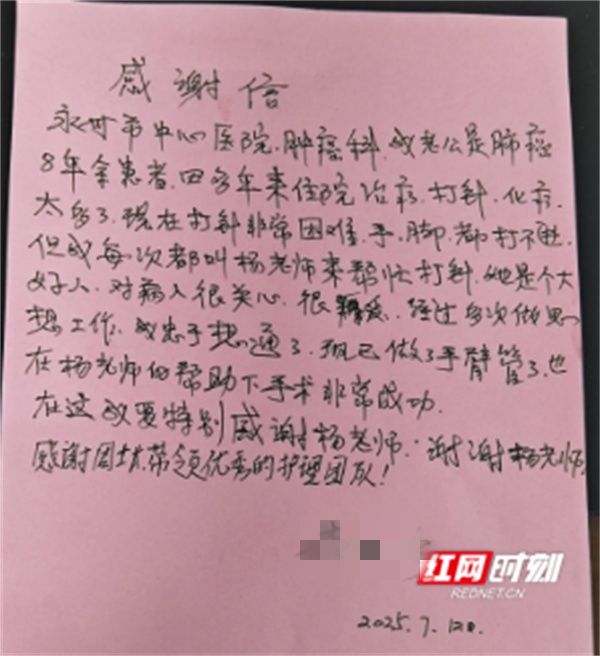 感谢信
永州市中心医院、肿瘤科、我老公是肺癌
8年余患者,四多年来住院治疗、打针、化疗、
太多了、现在打针非常困难、手、脚、都打不进、
但我每次都叫杨老师来帮忙打针、她是个大
好人、对病人很关心、很 、经过多次做思
想工作、我忠于想通了、现已做了手臂管了、也
在杨老师的帮助下手术非常成功.
在这我要特别感谢杨老师.谢谢杨老师,
感谢周 带领优秀的护理团队!
红网时刻
REDNET.CN
2025.7.12日.